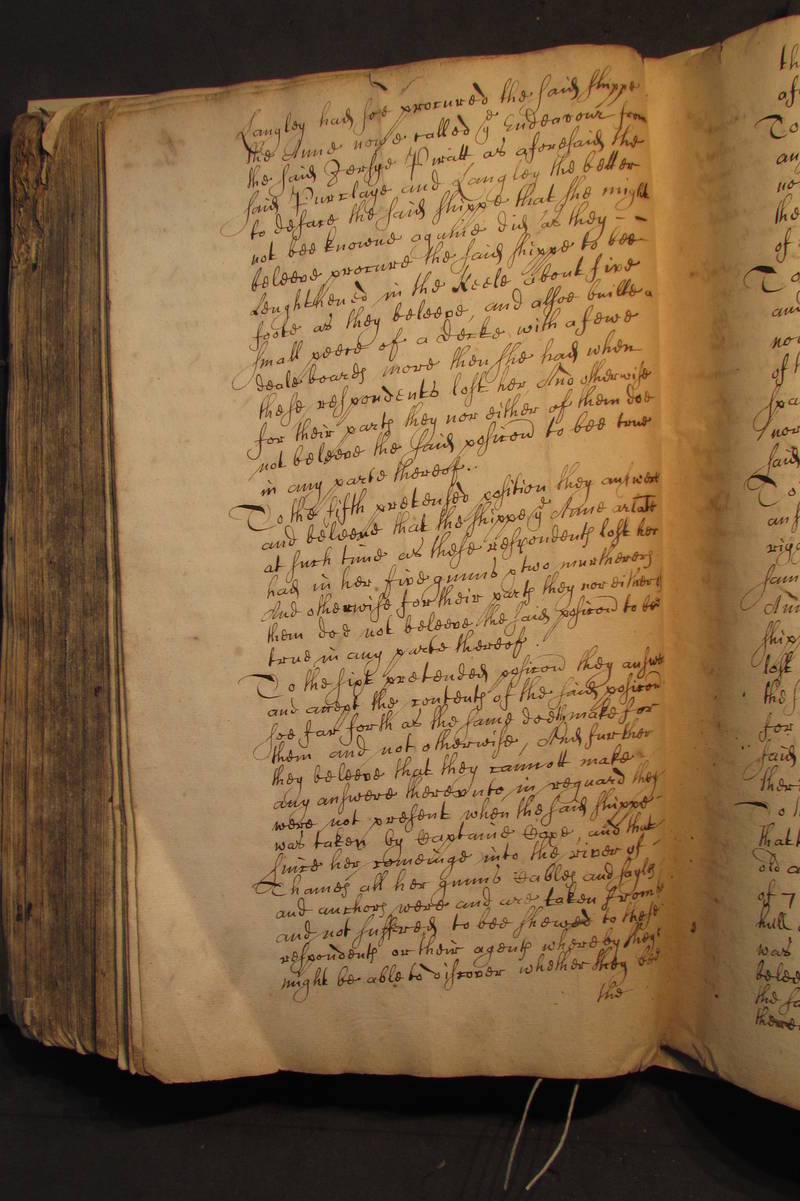 Langley had soe procured the said shippe
the Anne nowe called ye Endeavour from
the said Zersye Piratt as aforesaid the
said Purclaye and Langley the better
to deface the said shippe that she might
not bee knowne againe did as they
beleeve procure the said shippe to bee
Lenghthened in the Keele about five
foote as they beleeve, and allsoe builte a
small peece of a decke with a fewe
deale boards more then she had when
these respondents lost her And otherwise
for their parts they nor either of them doe
not beleeve the said positiond to bee true
in any parte thereof..
To the fifth pretensed position they answere
and beleeve that the shippe ye Anne arlate
at such time as these respondents lost her
had in her five gunns & two murtherers
And otherwise for their parts they nor either of
them doe not beleeve the said positiond to bee
true in any parte thereof.
To the sixt pretended positiond they answer
and accept the contents of the said positiond
soe far forth as the same doeth make for
them and not otherwise, And further
they beleeve that they cannott make
any answere therevnto in reguard they
were not present when the said shippe
was taken by Captaine Coxe, and that
since her comeinge into the river of
Thames all her gunns Cables and sayles
and anchors were and are taken from
and not suffered to bee shewed to these
respondents or their agents whereby they
might be able to discover whether they bee
the
th
of
To
an
no
the
of
To
and
no
of t
spa
nor
said
To
ans
rigg
sam
Ann
shipp
lost
the s
for
said
ther
To t
that t
old a
of 7
hull
was
belee
the sa
there